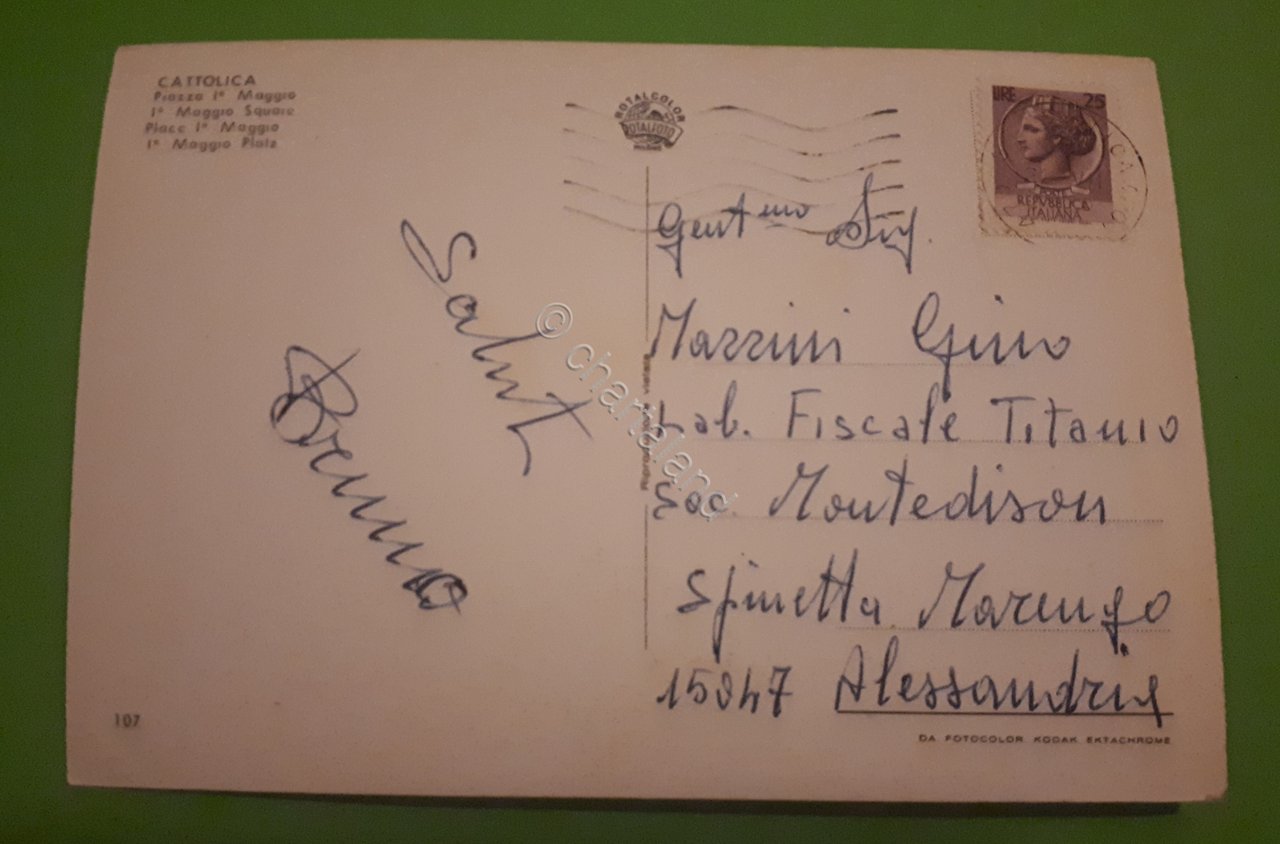 CATTOLICA
Piazza 1º Maggio
1º Maggio Square
Place 1º Maggio
1º Maggio Platz
ROTALCOLOR
ROTALFOTO
MILANO
LIRE 25
POSTE
REPVBBLICA
ITALIANA
Gent.mo Sig.
Mazzini Gino
Lab. Fiscale Titanio
Soc. Montedison
Spinetta Marengo
15047 Alessandria
Saluti
Bruno
© chartaland
107
DA FOTOCOLOR KODAK EKTACHROME